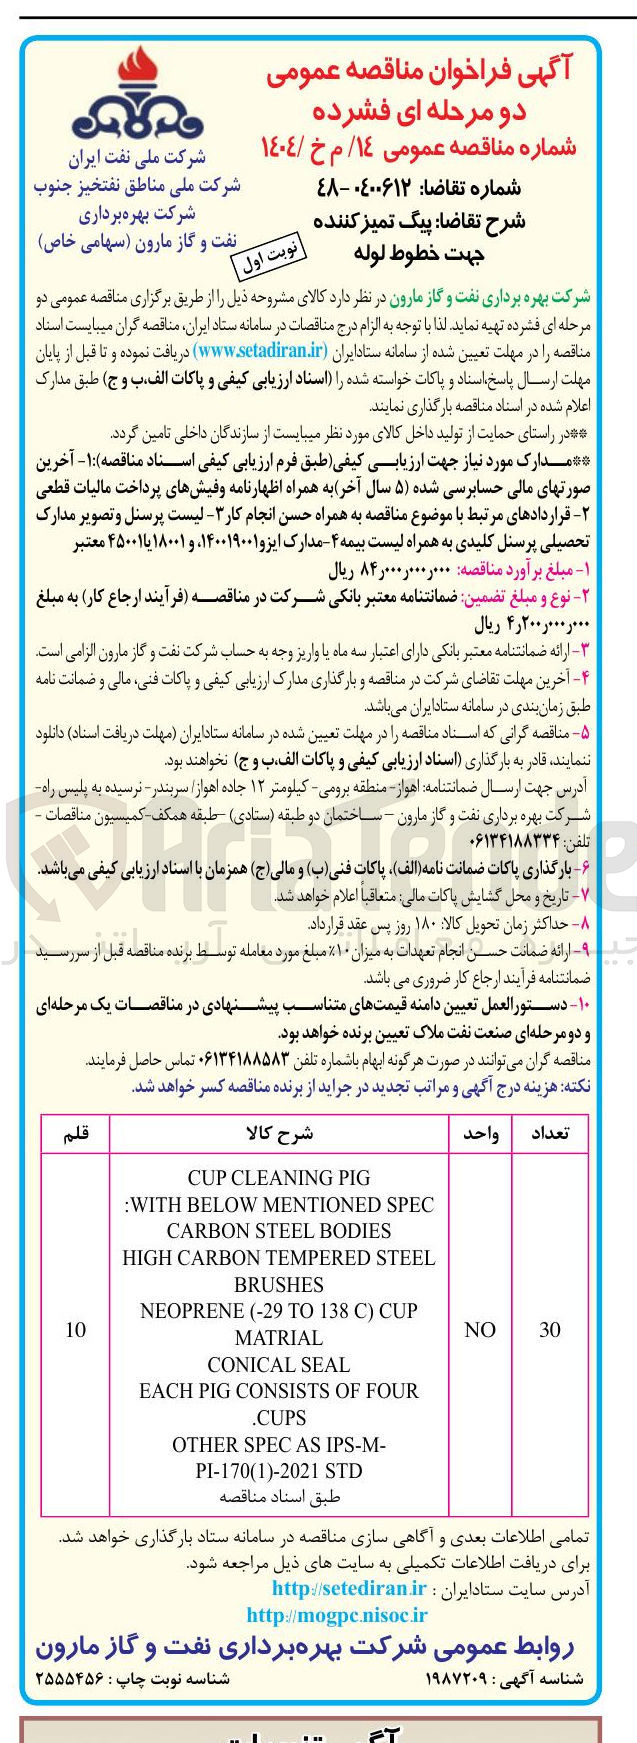 آگهی فراخوان مناقصه عمومی
دو مرحله ای فشرده
شماره مناقصه عمومی ۱۴/ م خ /۱۴۰۴
شماره تقاضا: ۰۴۰۰۶۱۲-۴۸
شرح تقاضا: پیگ تمیز کننده
جهت خطوط لوله
شرکت ملی نفت ایران
شرکت ملی مناطق نفتخیز جنوب
شرکت بهره‌برداری
نفت و گاز مارون (سهامی خاص)
نوبت اول
شرکت بهره برداری نفت و گاز مارون در نظر دارد کالای مشروحه ذیل را از طریق برگزاری مناقصه عمومی دو
مرحله ای فشرده تهیه نماید. لذا با توجه به الزام درج مناقصات در سامانه ستاد ایران، مناقصه گران میبایست اسناد
مناقصه را در مهلت تعیین شده از سامانه ستادایران (www.setadiran.ir) دریافت نموده و تا قبل از پایان
مهلت ارســال پاسخ،اسناد و پاکات خواسته شده را (اسناد ارزیابی کیفی و پاکات الف،ب و ج) طبق مدارک
اعلام شده در اسناد مناقصه بارگذاری نمایند.
**در راستای حمایت از تولید داخل کالای مورد نظر میبایست از سازندگان داخلی تامین گردد.
**مــدارک مورد نیاز جهت ارزیابــی کیفی(طبق فرم ارزیابی کیفی اســناد مناقصه):۱- آخرین
صورتهای مالی حسابرسی شده (۵ سال آخر)به همراه اظهارنامه وفیش‌های پرداخت مالیات قطعی
۲- قراردادهای مرتبط با موضوع مناقصه به همراه حسن انجام کار۳- لیست پرسنل وتصویر مدارک
تحصیلی پرسنل کلیدی به همراه لیست بیمه۴-مدارک ایزو۱۴۰۰۱۹۰۰۱، و ۱۸۰۰۱یا۴۵۰۰۱ معتبر
۱- مبلغ برآورد مناقصه: ۸۴ر۰۰۰ر۰۰۰ر۰۰۰ ریال
۲- نوع و مبلغ تضمین: ضمانتنامه معتبر بانکی شــرکت در مناقصــه (فرآیند ارجاع کار) به مبلغ
۴ر۲۰۰ر۰۰۰ر۰۰۰ ریال
۳- ارائه ضمانتنامه معتبر بانکی دارای اعتبار سه ماه یا واریز وجه به حساب شرکت نفت و گاز مارون الزامی است.
۴- آخرین مهلت تقاضای شرکت در مناقصه و بارگذاری مدارک ارزیابی کیفی و پاکات فنی، مالی و ضمانت نامه
طبق زمان‌بندی در سامانه ستادایران می‌باشد.
۵- مناقصه گرانی که اســناد مناقصه را در مهلت تعیین شده در سامانه ستادایران (مهلت دریافت اسناد) دانلود
ننمایند، قادر به بارگذاری (اسناد ارزیابی کیفی و پاکات الف،ب و ج) نخواهند بود.
آدرس جهت ارســال ضمانتنامه: اهواز- منطقه برومی- کیلومتر ۱۲ جاده اهواز/ سربندر- نرسیده به پلیس راه-
شــرکت بهره برداری نفت و گاز مارون – ســاختمان دو طبقه (ستادی) –طبقه همکف-کمیسیون مناقصات -
تلفن: ۰۶۱۳۴۱۸۸۳۳۴
۶- بارگذاری پاکات ضمانت نامه(الف)، پاکات فنی(ب) و مالی(ج) همزمان با اسناد ارزیابی کیفی می‌باشد.
۷- تاریخ و محل گشایش پاکات مالی: متعاقباً اعلام خواهد شد.
۸- حداکثر زمان تحویل کالا: ۱۸۰ روز پس عقد قرارداد.
۹- ارائه ضمانت حســن انجام تعهدات به میزان ۱۰٪ مبلغ مورد معامله توسط برنده مناقصه قبل از سررسید
ضمانتنامه فرآیند ارجاع کار ضروری می باشد.
۱۰- دســتورالعمل تعیین دامنه قیمت‌های متناســب پیشــنهادی در مناقصــات یک مرحله‌ای
و دو مرحله‌ای صنعت نفت ملاک تعیین برنده خواهد بود.
مناقصه گران می‌توانند در صورت هر گونه ابهام باشماره تلفن ۰۶۱۳۴۱۸۸۵۸۳ تماس حاصل فرمایند.
نکته: هزینه درج آگهی و مراتب تجدید در جراید از برنده مناقصه کسر خواهد شد.
تعداد واحد شرح کالا قلم
CUP CLEANING PIG
:WITH BELOW MENTIONED SPEC
CARBON STEEL BODIES
HIGH CARBON TEMPERED STEEL
BRUSHES
NEOPRENE (-29 TO 138 C) CUP
MATRIAL
CONICAL SEAL
EACH PIG CONSISTS OF FOUR
.CUPS
OTHER SPEC AS IPS-M-
PI-170(1)-2021 STD
طبق اسناد مناقصه
30 NO 10
تمامی اطلاعات بعدی و آگاهی سازی مناقصه در سامانه ستاد بارگذاری خواهد شد.
برای دریافت اطلاعات تکمیلی به سایت های ذیل مراجعه شود.
آدرس سایت ستادایران : http://setediran.ir
http://mogpc.nisoc.ir
روابط عمومی شرکت بهره‌برداری نفت و گاز مارون
شناسه آگهی : ۱۹۸۷۲۰۹ شناسه نوبت چاپ : ۲۵۵۵۴۵۶